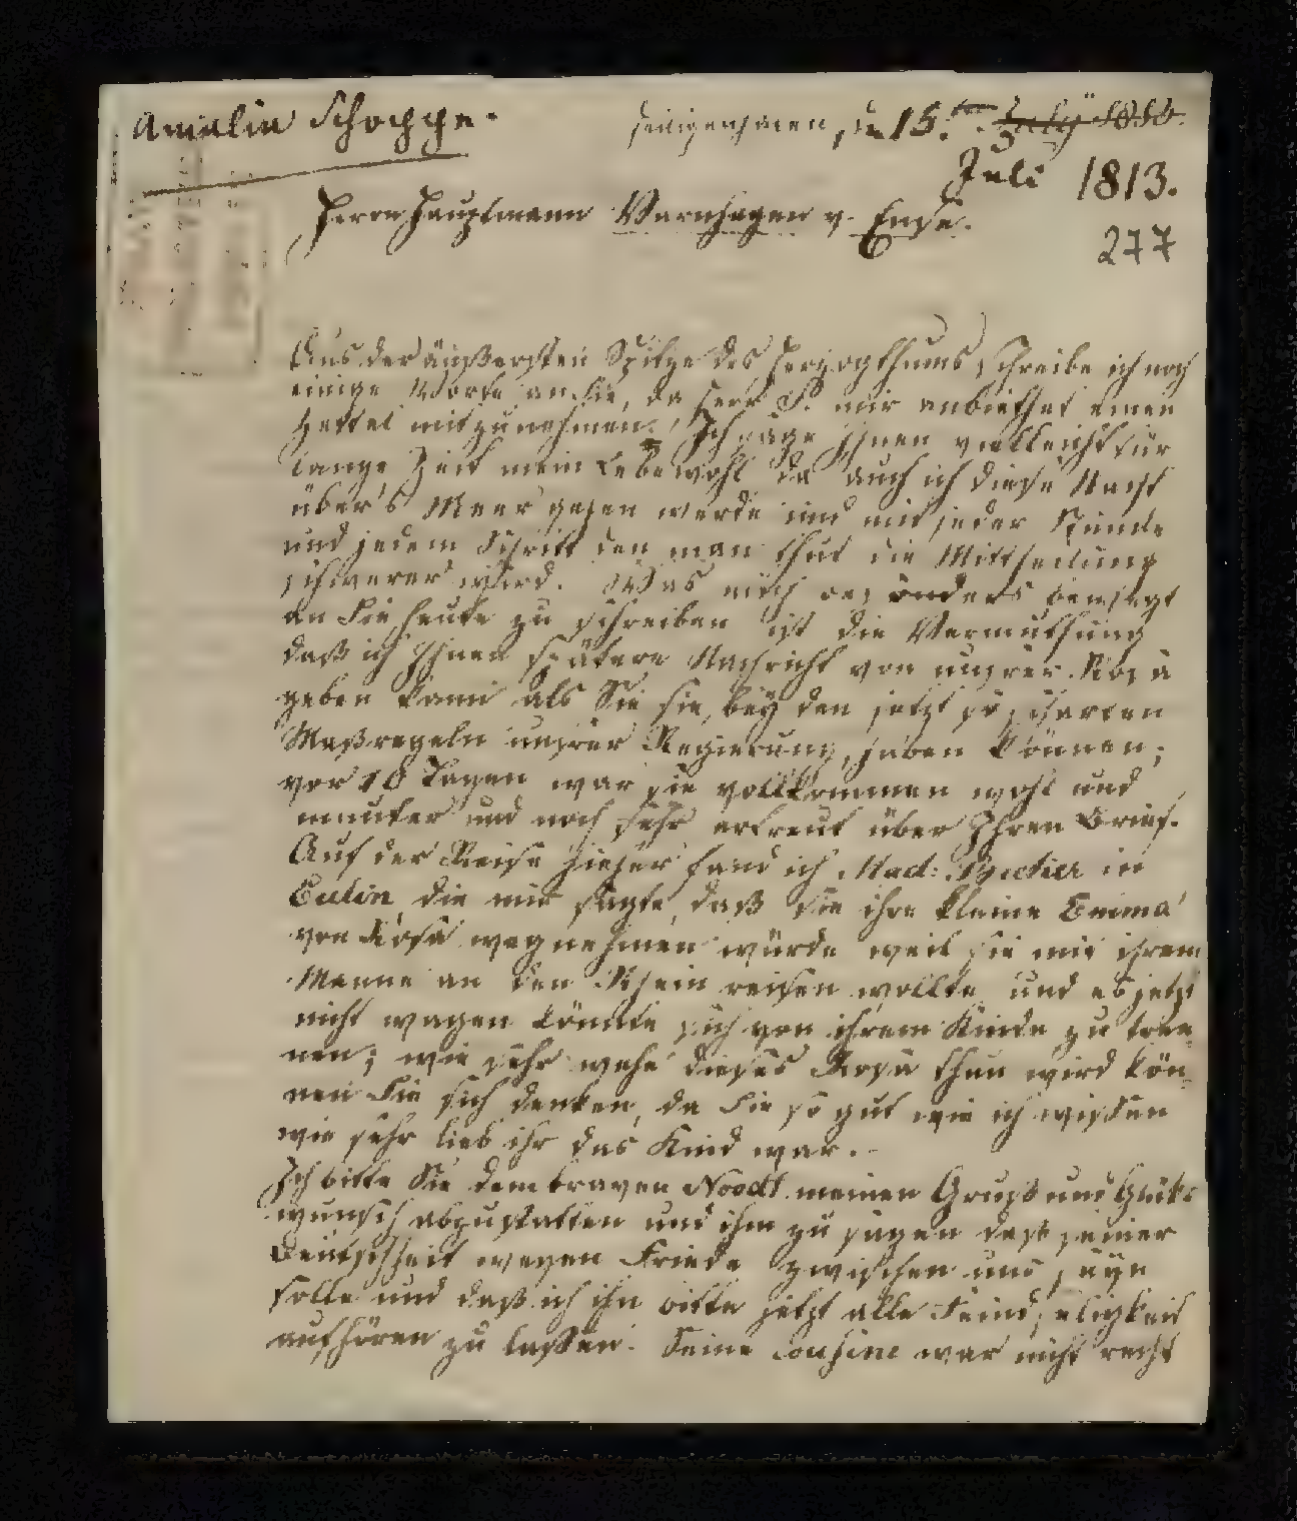 Amalia Schoppe.
Heiligenhafen, den 15.ten July 1813.
Juli 1813.
Herrn Hauptmann Varnhagen v. Ense.
277
Aus der äußersten Spitze des Herzogthums schreibe ich noch
einige Worte an Sie, da Herr S. mir anbiethet einen
Zettel mitzunehmen. Ich sage Ihnen vielleicht für
lange Zeit mein Lebewohl da auch ich diese Nacht
über's Meer gehen werde und mit jeder Stunde
und jedem Schritt den man thut die Mittheilung
schwerer wird. Was mich besonders bewegt
an Sie heute zu schreiben ist die Vermuthung
daß ich Ihnen spätere Nachricht von unsrer Rosa
geben kann als Sie sie, bey den jetzt so scharfen
Maßregeln unsrer Regierung, haben können;
vor 10 Tagen war sie vollkommen wohl und
munter und noch sehr erfreut über Ihren Brief.
Auf der Reise hieher fand ich Mad:
Eutin die mir sagte, daß sie ihre kleine Emma
von Rosa wegnehmen würde weil sie mit ihrem
Manne an den Rhein reisen wollte und es jetzt
nicht wagen könnte sich von ihrem Kinde zu tren-
nen; wie sehr wehe dieses Rosa thun wird kön-
nen Sie sich denken, da Sie so gut wie ich wissen
wie sehr lieb ihr das Kind war.
Ich bitte Sie dem braven Noodt meinen Gruß und Glück-
wunsch abzustatten und ihm zu sagen daß seiner
Deutschheit wegen Friede zwischen uns seyn
solle und daß ich ihn bitte jetzt alle Feindseligkeit
aufhören zu laßen. Seine Cousine war nicht recht